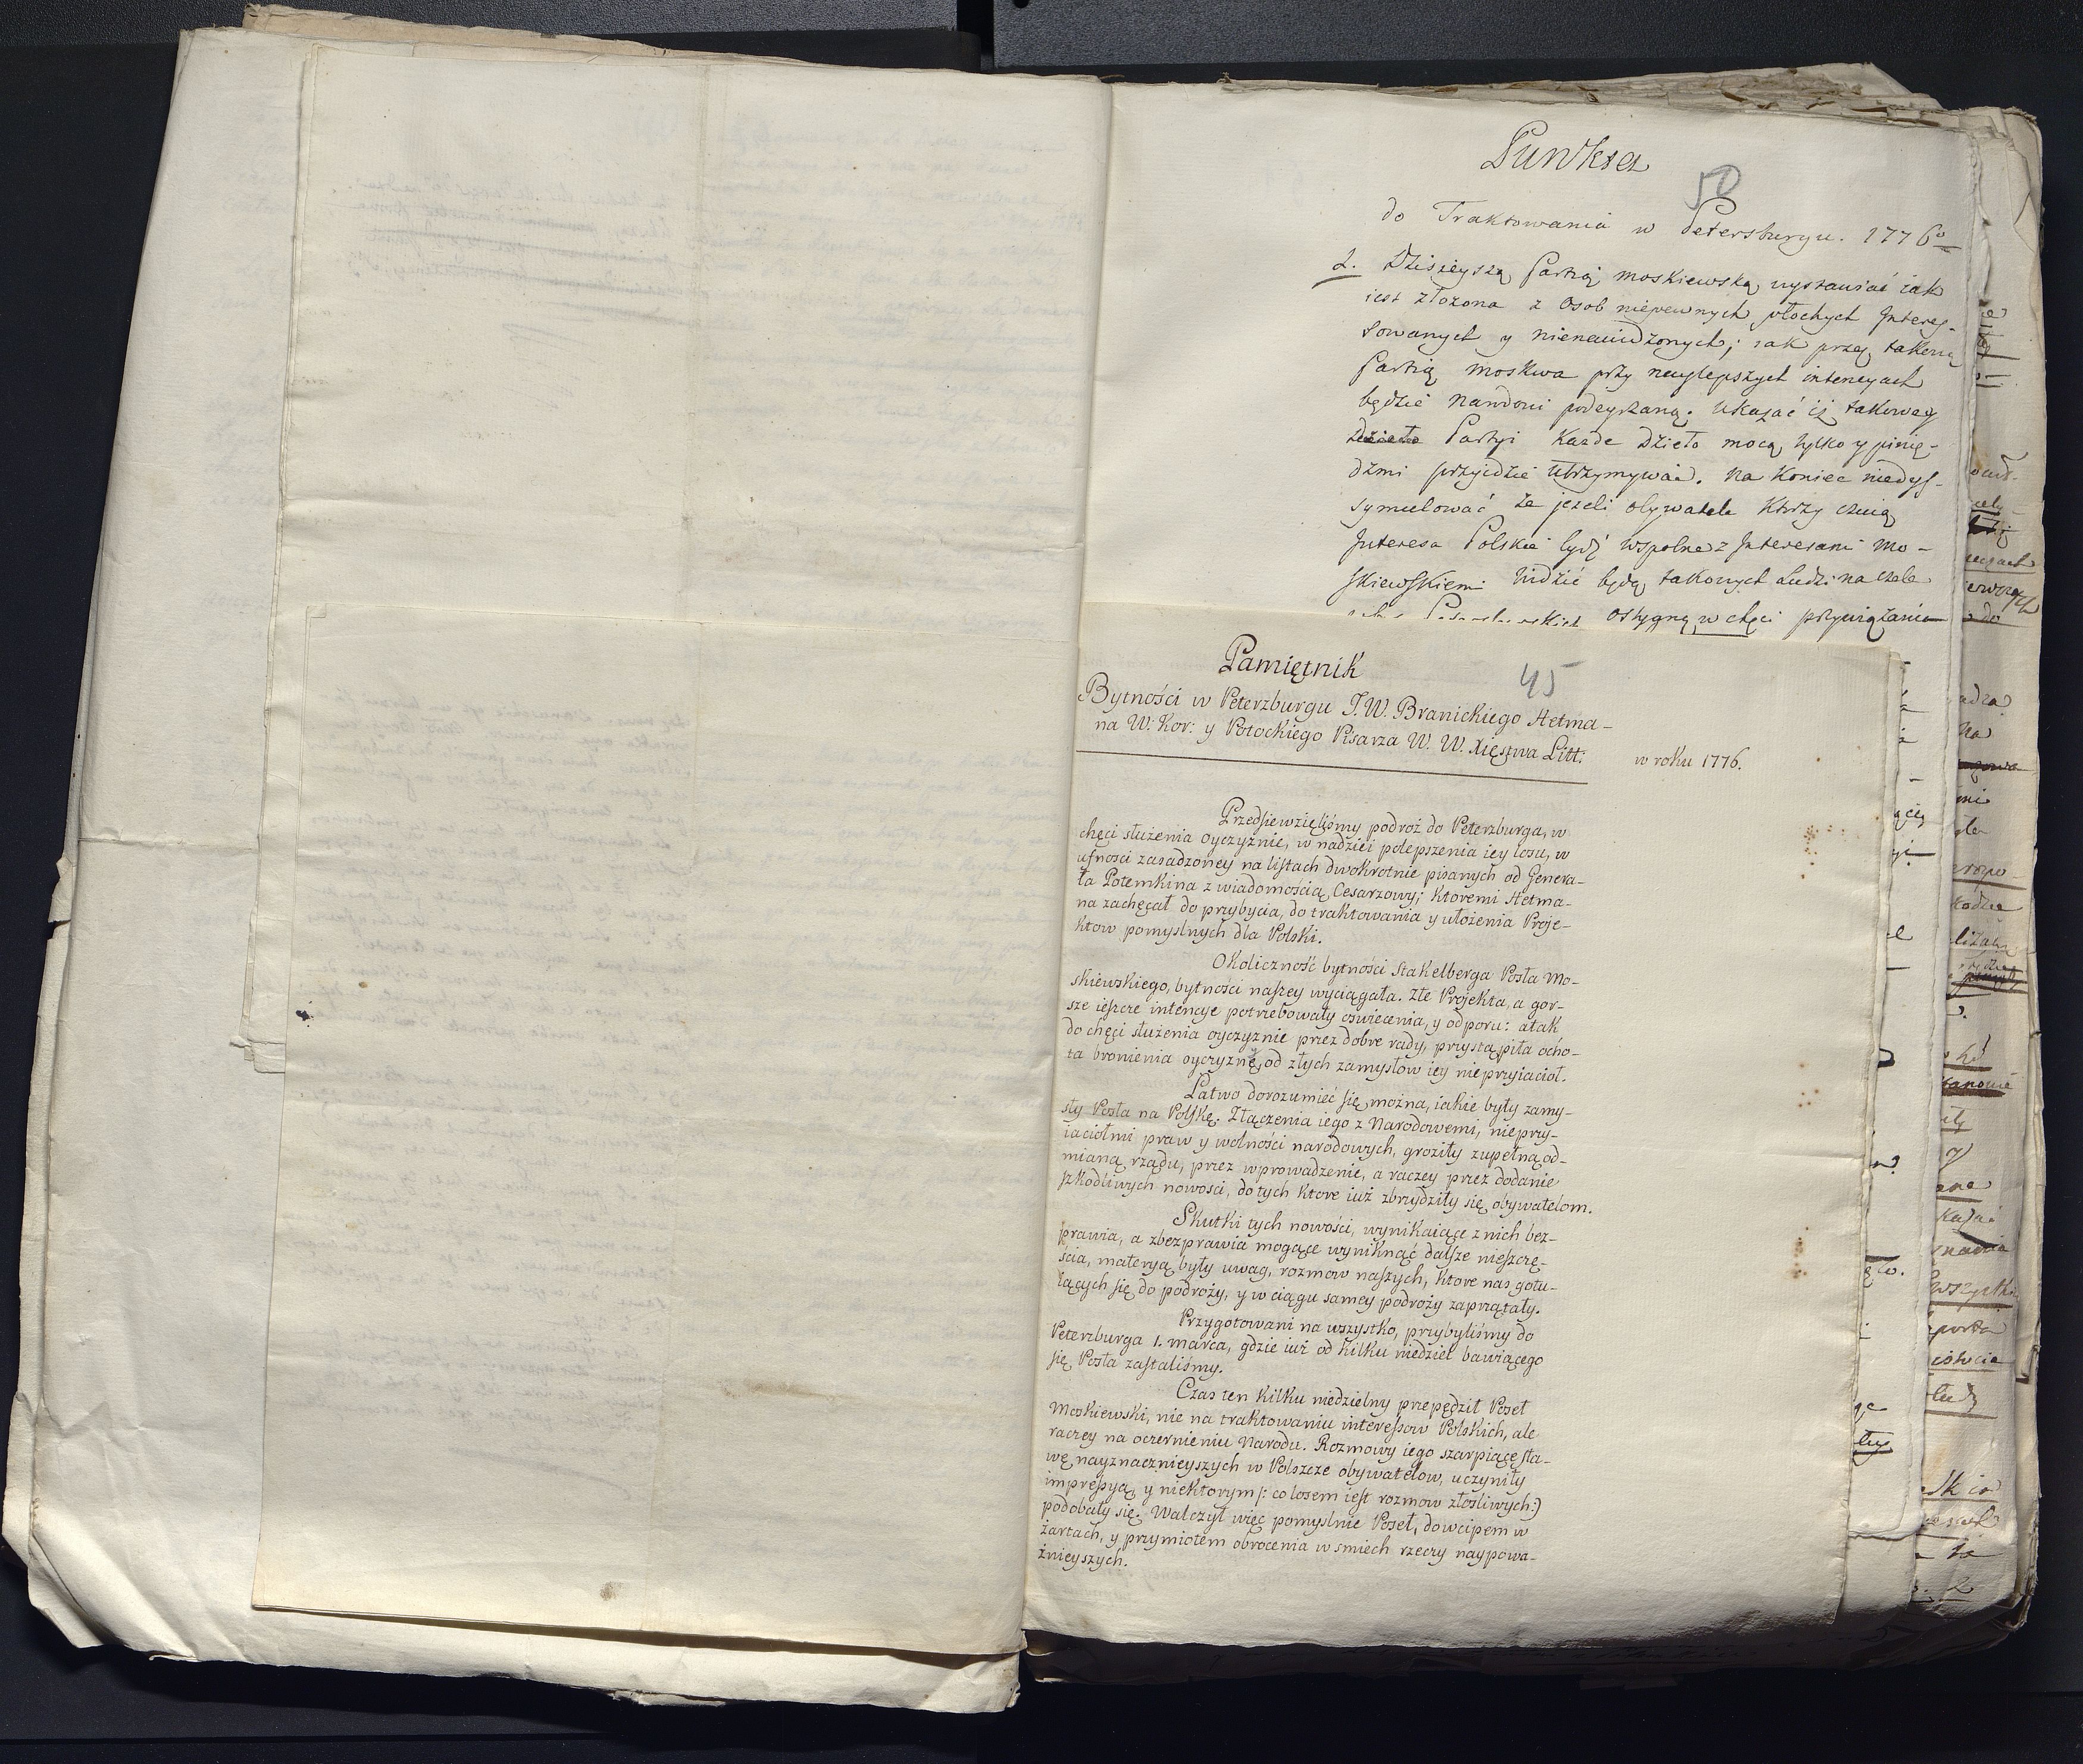 Punkta
50
do Traktowania w Petersburgu. 1776º
1. Dzisieyszą Partią moskiewską wystawiać iak
iest złożona z Osob niepewnych płochych Interes-
sowanych y nienawidzonych; iak przez takową
Partią moskwa przy naylepszych intencyach
będzie Narodowi podeyrzaną. Ukazać iż takowey
Partyi Kazde Dzieło mocą tylko y pienię-
dzmi przyidzie utrzymywać. Na Koniec niedys-
symulować że jezeli obywatele Ktorzy czuią
Interesa Polskie bydź wspolne z Interesami Mo-
skiewskiemi widzić będą takowych Ludzi na czele
ostygną w chęci przywiązania
Pamiętnik
45
Bytności w Peterzburgu J.W. Branickiego Hetma-
na W. Kor: y Potockiego Pisarza W. W. Xięstwa Litt:
w roku 1776.
Przedsiewzięliśmy podroż do Peterzburga, w
chęci służenia oyczyźnie, w nadziei polepszenia iey losu, w
ufności zasadzoney na listach dwokrotnie pisanych od Genera-
ła Potemkina z wiadomością Cesarzowy; ktoremi Hetma-
na zachęcał do przybycia, do traktowania y ułożenia Proje-
ktow pomyslnych dla Polski.
Okoliczność bytności Stakelberga Posła Mo-
skiewskiego, bytności naszey wyciągała. Złe Projekta, a gor-
sze ieszcze intencye potrzebowały oswiecenia, y odporu: a tak
do chęci służenia oyczyznie przez dobre rady, przystąpiła ocho-
ta bronienia oyczyznę, od złych zamysłow iey nieprzyiacioł.
Łatwo dorozumieć się można, iakie były zamy-
sły Posła na Polskę. Złączenia iego z Narodowemi, nieprzy-
iaciołmi praw y wolności narodowych, groziły zupełną od-
mianą rządu, przez wprowadzenie, a raczey przez dodanie
szkodliwych nowosci, do tych ktore iuż zbrzydziły się obywatelom.
Skutki tych nowości, wynikaiące z nich bez-
prawia, a z bezprawia mogące wyniknąć dalsze nieszczę-
ścia, materyą były uwag, rozmow naszych, ktore nas gotu-
iących się do podroży, y w ciągu samey podroży zaprzątały.
Przygotowani na wszystko, przybyliśmy do
Peterzburga 1. marca, gdzie iuż od kilku niedziel bawiącego
się Posła zastaliśmy.
Czas ten kilku niedzielny przepędził Poseł
Moskiewski, nie na traktowaniu interessow Polskich, ale
raczey na oczernieniu Narodu. Rozmowy iego szarpiące sła-
wę nayznacznieyszych w Polszcze obywatelow, uczyniły
impressyą, y niektorym /: co losem iest rozmow złosliwych:)
podobały się. Walczył więc pomyslnie Poseł, dowcipem w
żartach, y przymiotem obrocenia w smiech rzeczy naypowa-
żnieyszych.